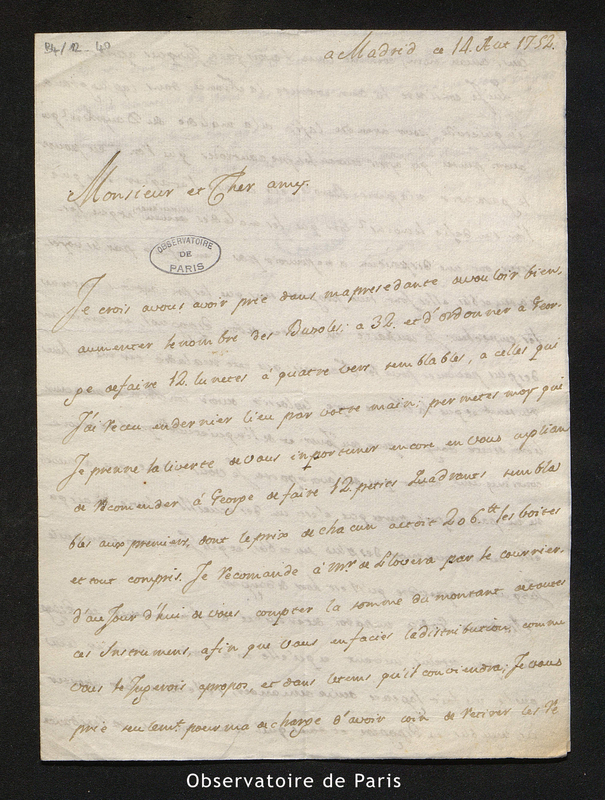 B4/12 - 40
a Madrid ce 14. Aut 1752.
Monsieur et Cher amy.
OBSERVATOIRE
DE
PARIS
Je crois avous avoir prié dans mapresedante avouloir bien,
aumenter le nombre des Busoles; a 32. et d'ordonner a Geor-
ge defaire 12. lunetes a quatre vers semblables, a celles qui
J'ai receu endernier lieu par votre main; permetes moy qui
Je prenne la liverté de vous inportuner encore en vous
de recomender á George de faire 12. petites Quadrants sembla
bles aux premiers, dont le prix de chacun etoit 206.tt les boites
et tout compris. Je recomande á Mr. de Llovera par le courrier
d'auJourd'hui de vous compter la somme du montant detoutes
ces Instrumens, afin que vous enfacies ladistribution, comme
vous le Jugerois apropos, et dans letems qu'il conviendra; Je vous
prié seulemt. pour ma decharge d'avoir soin de retirer les re
Observatoire de Paris